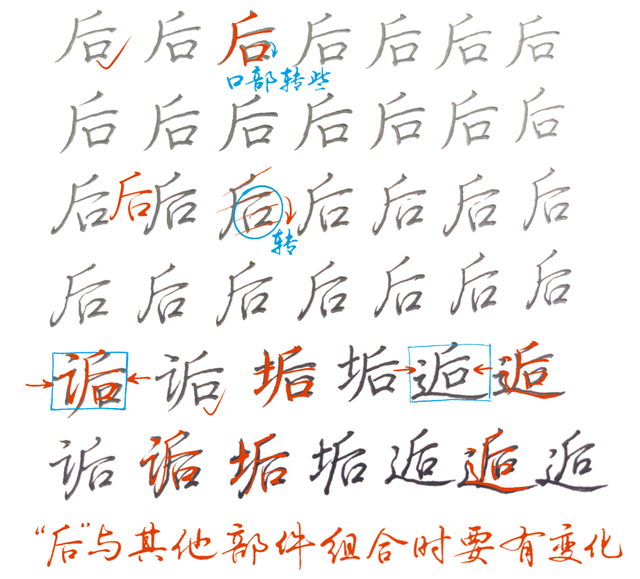 后 后 后 后 后 后 后
口部转些
后 后 后 后 后 后 后
后 后 后 后 后 后 后 后
转
后 后 后 后 后 后 后
诟 诟 垢 垢 逅 逅
诟 诟 垢 垢 逅 逅 逅
“后”与其他部件组合时要有变化